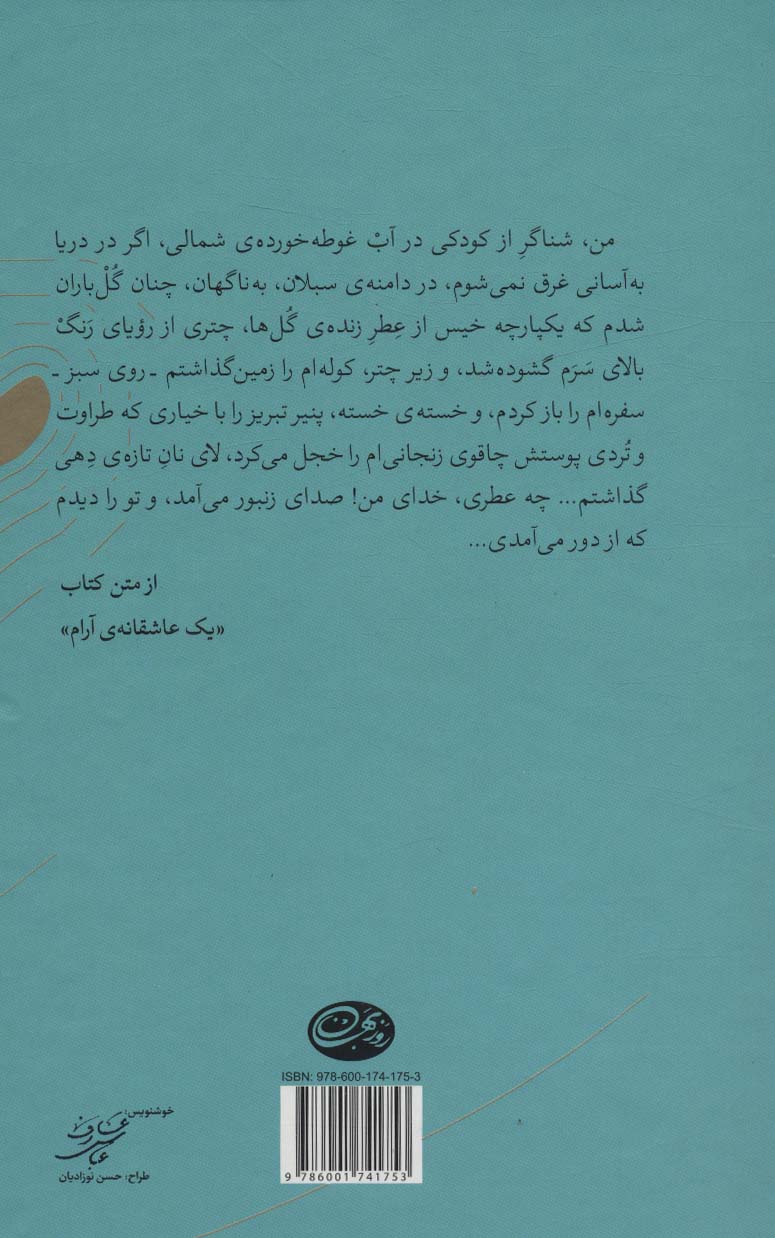 من، شناگرِ از کودکی در آبْ غوطه‌خورده‌ی شمالی، اگر در دریا
به‌آسانی غرق نمی‌شوم، در دامنه‌ی سبلان، به‌ناگهان، چنان گُلْ‌باران
شدم که یکپارچه خیس از عِطرِ زنده‌ی گُل‌ها، چتری از رؤیای رَنگْ
بالای سَرَم گشوده‌شد، و زیر چتر، کوله‌ام را زمین‌گذاشتم ـ روی سبز ـ
سفره‌ام را باز کردم، و خسته‌ی خسته، پنیر تبریز را با خیاری که طراوت
و تُردی پوستش چاقوی زنجانی‌ام را خجل می‌کرد، لای نانِ تازه‌ی دِهی
گذاشتم... چه عطری، خدای من! صدای زنبور می‌آمد، و تو را دیدم
که از دور می‌آمدی...
از متن کتاب
«یک عاشقانه‌ی آرام»
روزبهان
ISBN: 978-600-174-175-3
9 786001 741753
خوشنویس:
طراح: حسن نوزادیان